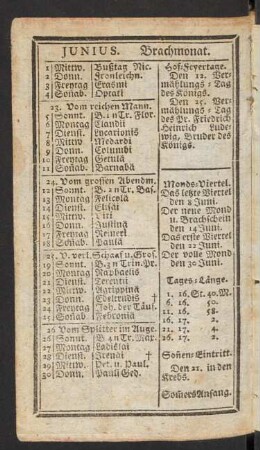 JUNIUS. Brachmonat.
1 Mittw. Bußtag Nic.
2 Donn. Fronleichn.
3 Freytag Erasmi
4 Soñab. Optati
23. Vom reichen Mann.
5 Sonnt. B. 1 n Tr. Flor.
6 Montag Claudii
7 Dienst. Lucretionis
8 Mittw. Medardi
9 Donn. Columbi
10 Freytag Getulä
11 Soñab. Barnabä
24. Vom grossen Abendm.
12 Sonnt. B. 2 n Tr. Bas.
13 Montag Felicolä
14 Dienst. Elisäi
15 Mittw. Viti
16 Donn. Justinä
17 Freytag Reineri
18 Soñab. Paulä
25. V. verl. Schaaf u. Gros.
19 Sonnt. B. 3 n Trin. Pr.
20 Montag Raphaelis
21 Dienst.
22 Mittw. Agrippinä
23 Donn. Edeltrudis †
24 Freytag Joh. der Täuf.
25 Soñab. Febronia
26 Vom Splitter im Auge.
26 Sonnt. B 4 n Tr. Mar.
27 Montag Ladislai
28 Dienst. Irenäi †
29 Mittw. Pet. u. Paul.
30 Donn. Pauli Ged.
Hof-Feyertage.
Den 12. Ver-
mählungs-Tag
des Königs.
Den 25. Ver-
mählungs-Tag
des Pr. Friedrich
Heinrich Lude-
wig, Bruder des
Königs.
Monds-Viertel.
Das letzte Viertel
den 8 Juni.
Der neue Mond
u. Brachschein
den 14 Juni.
Das erste Viertel
den 22 Juni.
Der volle Mond
den 30 Juni.
Tages-Länge.
1. 16. St. 40. M.
6. 16. 50.
11. 16. 58.
16. 17. 2.
21. 17. 4.
26. 17. 2.
Soñen Eintritt.
Den 21. in den
Krebs.
Som̃ers Anfang.